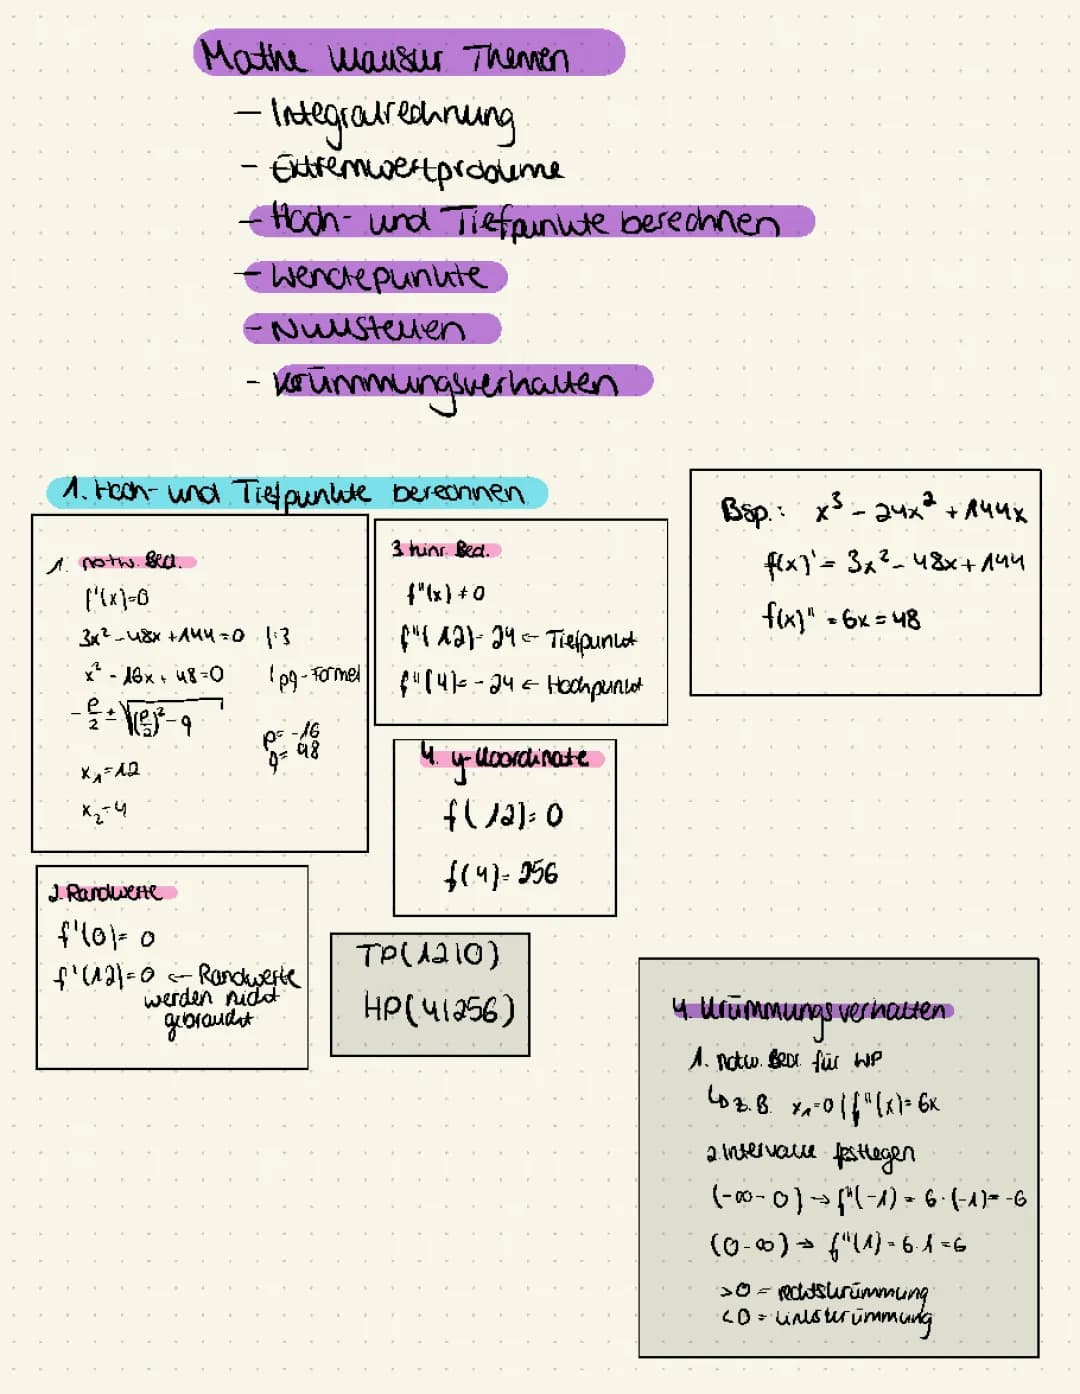 Mathe Klausur Themen
- Integralrechnung
- Extremwertprobleme
- Hoch- und Tiefpunkte berechnen
- Wendepunkte
- Nullstellen
- Krümmungsverhalten
1. Hoch- und Tiefpunkte berechnen
1. notw. Bed.
f'(x)=0
3x² - 48x + 144 = 0 | :3
x² - 16x + 48 = 0 | pq-Formel
- p/2 ± √((p/2)² - q
p = -16
q = 48
x₁ = 12
x₂ = 4
2. Randwerte
f'(0) = 0
f'(12) = 0 ← Randwerte
werden nicht
gebraucht
3. hinr. Bed.
f"(x) ≠ 0
f"(12) = 24 ← Tiefpunkt
f"(4) = -24 ← Hochpunkt
4. y-Koordinate
f(12) = 0
f(4) = 256
TP(12|0)
HP(4|256)
Bsp.: x³ - 24x² + 144x
f(x)' = 3x² - 48x + 144
f(x)" = 6x = 48
4. Krümmungsverhalten
1. notw. Bed. für WP
↳ z.B. x₁ = 0 | f"(x) = 6x
2. Intervalle festlegen
(-∞ - 0) → f"(-1) = 6 · (-1) = -6
(0 - ∞) → f"(1) = 6 · 1 = 6
>0 = rechtskrümmung
<0 = linkskrümmung